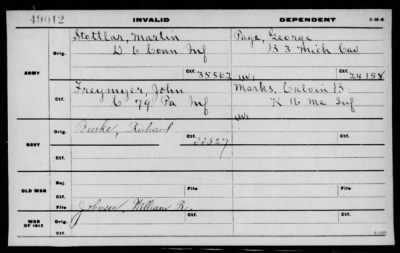 49012 INVALID DEPENDENT 3-98-M
Stottlar, Martin Page, George
Orig. D 6 Conn Inf B 3 Mich Cav
ARMY Ctf. 35562 Ctf. 24158
Freymyer, John Marks, Calvin B
Ctf. C 79 Pa Inf K 16 Me Inf
Orig. Burke, Richard Ctf.
NAVY
Ctf.
OLD WAR Rej. File
Ctf. File
WAR OF 1812 Orig. Johnson, William R. Ctf. Orig. Ctf.